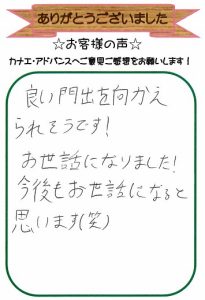 ありがとうございました
☆お客様の声☆
カナエ・アドバンスへご意見ご感想をお願いします！
良い門出を向かえ
られそうです！
お世話になりました！
今後もお世話になると
思います(笑)